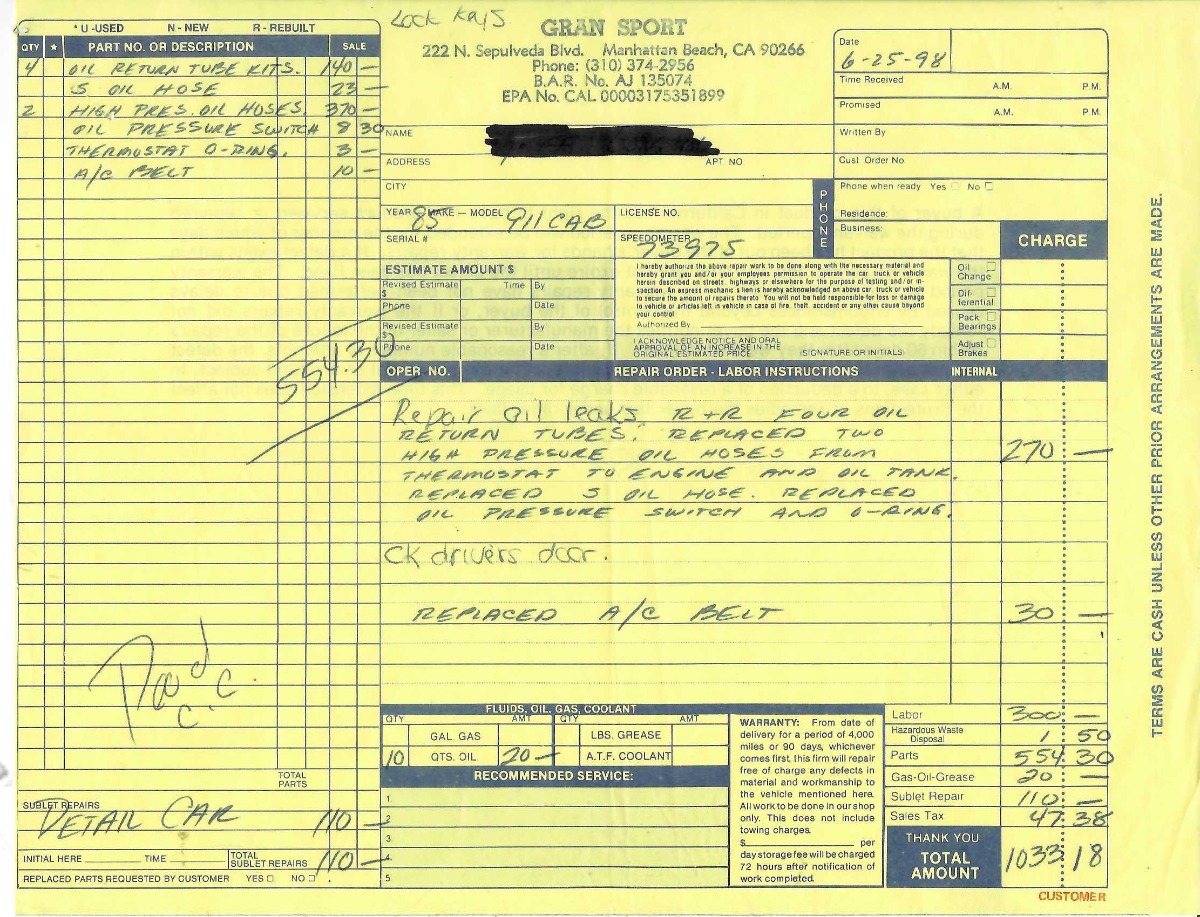 Lock Kays
GRAN SPORT
222 N. Sepulveda Blvd. Manhattan Beach, CA 90266
Phone: (310) 374-2956
B.A.R. No. AJ 135074
EPA No. CAL 00003175351899
*U-USED N-NEW R-REBUILT
QTY * PART NO. OR DESCRIPTION SALE
4 OIL RETURN TUBE KITS. 140 —
S OIL HOSE 23 —
2 HIGH PRES. OIL HOSES. 370 —
OIL PRESSURE SWITCH 8 30
THERMOSTAT O-RING. 3 —
A/C BELT 10 —
554.30
Paid C.C.
TOTAL PARTS
SUBLET REPAIRS
DETAIL CAR 110 —
INITIAL HERE TIME TOTAL SUBLET REPAIRS 110 —
REPLACED PARTS REQUESTED BY CUSTOMER YES NO
Date
6-25-98
Time Received A.M. P.M.
Promised A.M. P.M.
Written By
Cust. Order No
Phone when ready Yes No
PHONE
Residence:
Business:
NAME
ADDRESS APT NO
CITY
YEAR 85 MAKE — MODEL 911 CAB LICENSE NO.
SERIAL # SPEEDOMETER 73975
ESTIMATE AMOUNT $
Revised Estimate $ Time By
Phone Date
Revised Estimate $ By
Phone Date
I hereby authorize the above repair work to be done along with the necessary material and
hereby grant you and/or your employees permission to operate the car, truck or vehicle
herein described on streets, highways or elsewhere for the purpose of testing and/or in-
spection. An express mechanic s lien is hereby acknowledged on above car, truck or vehicle
to secure the amount of repairs thereto. You will not be held responsible for loss or damage
to vehicle or articles left in vehicle in case of fire, theft, accident or any other cause beyond
your control
Authorized By
I ACKNOWLEDGE NOTICE AND ORAL
APPROVAL OF AN INCREASE IN THE
ORIGINAL ESTIMATED PRICE
(SIGNATURE OR INITIALS)
CHARGE
Oil Change
Dif-ferential
Pack Bearings
Adjust Brakes
OPER. NO. REPAIR ORDER - LABOR INSTRUCTIONS INTERNAL
Repair oil leaks R+R FOUR OIL
RETURN TUBES. REPLACED TWO
HIGH PRESSURE OIL HOSES FROM 270 —
THERMOSTAT TO ENGINE AND OIL TANK.
REPLACED S OIL HOSE. REPLACED
OIL PRESSURE SWITCH AND O-RING.
CK drivers door.
REPLACED A/C BELT 30 —
FLUIDS, OIL, GAS, COOLANT
QTY AMT QTY AMT
GAL. GAS LBS. GREASE
10 QTS. OIL 20 — A.T.F. COOLANT
RECOMMENDED SERVICE:
1
2
3
4.
5.
WARRANTY: From date of
delivery for a period of 4,000
miles or 90 days, whichever
comes first, this firm will repair
free of charge any defects in
material and workmanship to
the vehicle mentioned here.
All work to be done in our shop
only. This does not include
towing charges.
$ per
day storage fee will be charged
72 hours after notification of
work completed.
Labor 300 —
Hazardous Waste Disposal 1 50
Parts 554 30
Gas-Oil-Grease 20 —
Sublet Repair 110 —
Sales Tax 47 38
THANK YOU
TOTAL AMOUNT 1033 18
CUSTOMER
TERMS ARE CASH UNLESS OTHER PRIOR ARRANGEMENTS ARE MADE.